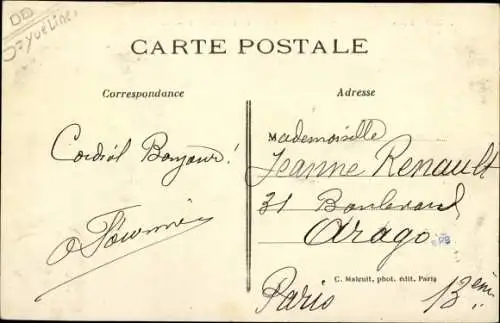 DD
S=yveline.
CARTE POSTALE
Correspondance
Adresse
Cordial Bonjour!
Mademoiselle
Jeanne Renault
31 Boulevard
Arago
Paris 13eme
C. Malcuit, phot. édit. Paris